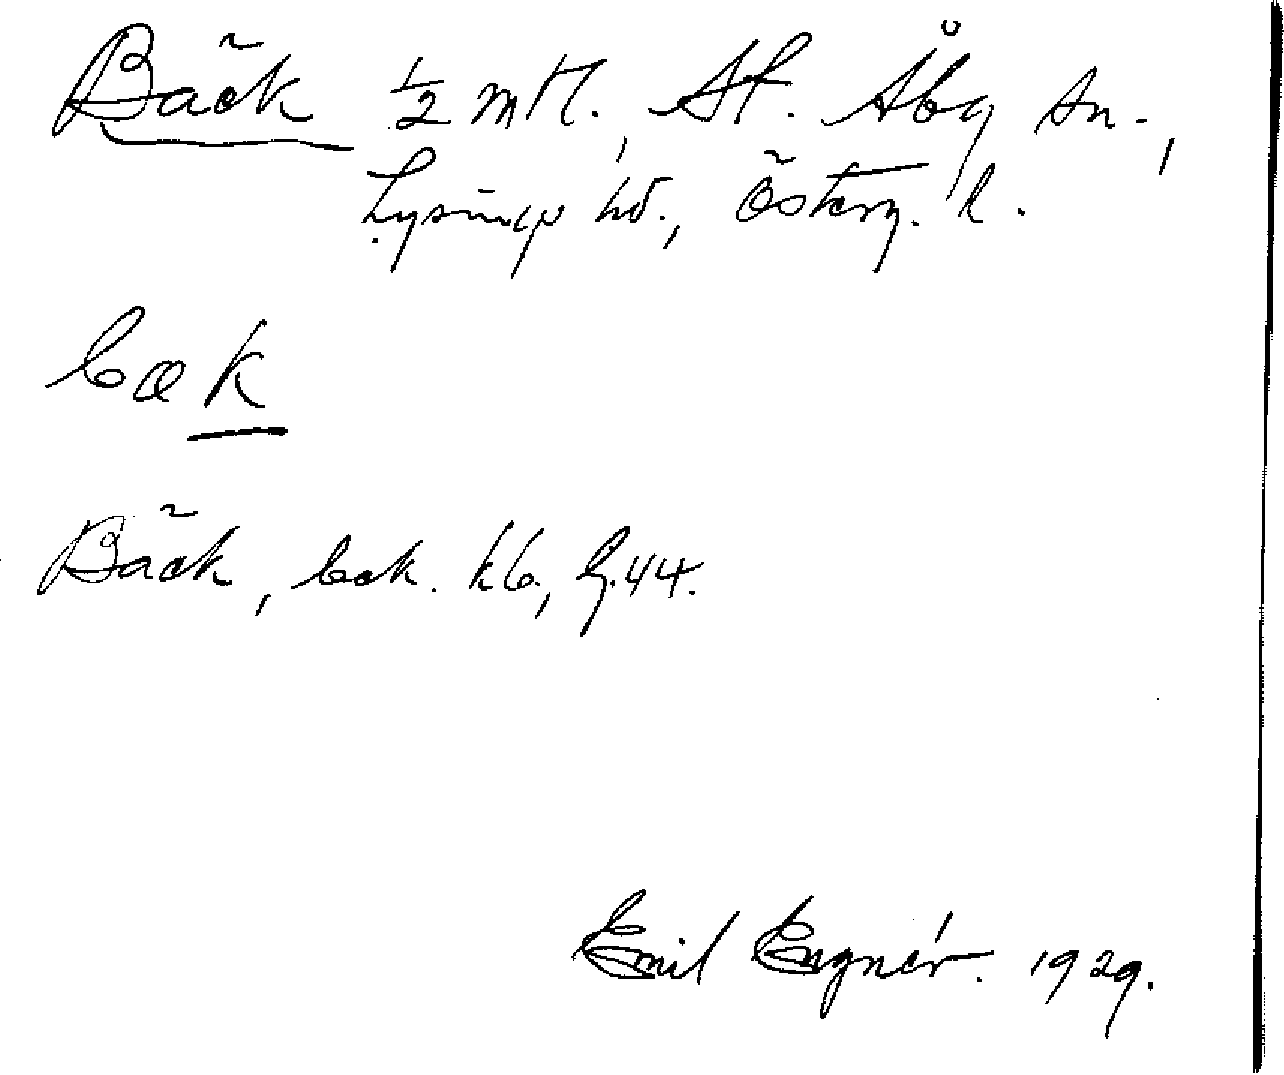 Bäck ½ mtl., St. Åby sn.,
Lysings hd., Österg. l.
bæk
Bäck, bæk. kb., G. 44.
Emil Engnér. 1929.